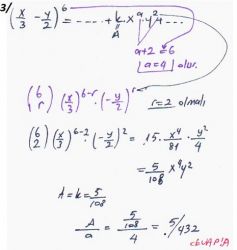 3/ (x/3 - y/2)^6 = ..... + k x^a y^2 ....
A
a+2=6
a=4 olur.
(6 r) (x/3)^6-r . (-y/2)^r r=2 olmalı
(6 2) (x/3)^6-2 . (-y/2)^2 = .15. x^4/81 . y^2/4
= 5/108 x^4y^2
A=k= 5/108
A/a = 5/108 / 4 = 5/432